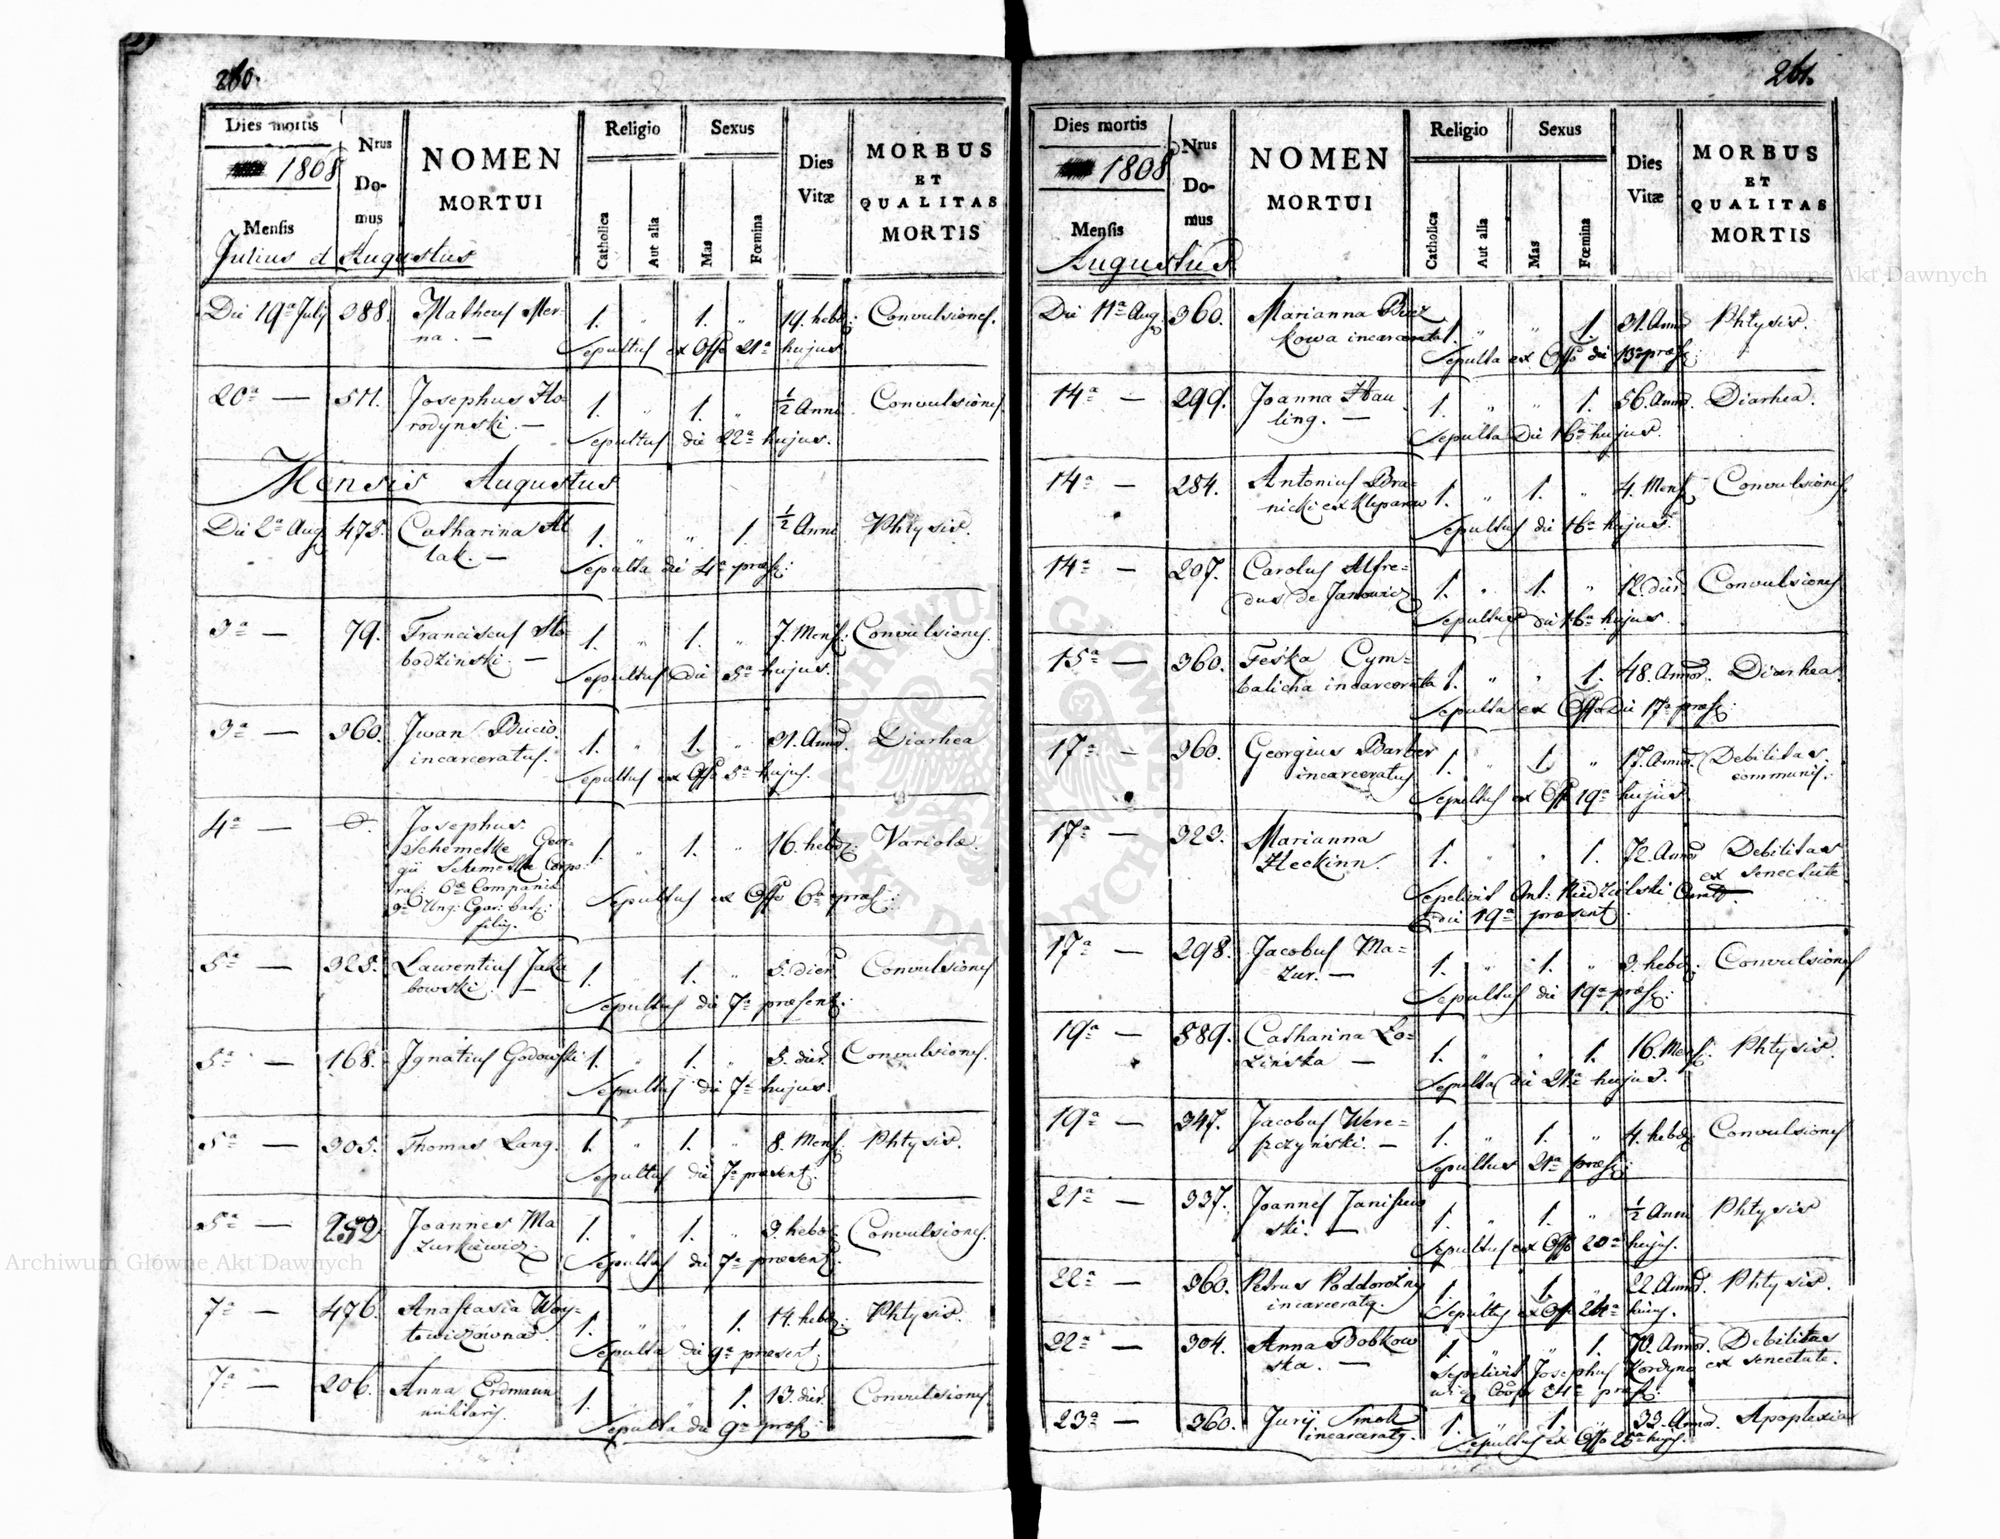 260.
Dies mortis
1808
Mensis
Nrus Do- mus
NOMEN
MORTUI
Religio
Catholica
Aut alia
Sexus
Mas
Fœmina
Dies Vitæ
MORBUS
ET
QUALITAS
MORTIS
Julius et Augustus
Die 19ª July 388. Matheus Mer- 1. " 1. " 19. hebd: Convulsiones.
na. —
Sepultus ex Offo 21ª hujus
20ª — 511. Josephus Ho- 1. " 1. " ½ Anni Convulsiones
rodynski. —
Sepultus die 22ª hujus.
Mensis Augustus
Die 2ª Aug 475. Catharina 1. " " 1 ½ Anni Phtysis.
lak. —
Sepulta die 4ª præs:
3ª — 79. Franciscus Slo- 1. " 1. " 7. Mens: Convulsiones.
bodzinski. —
Sepultus die 5ª hujus.
3ª — 360. Jwan Bucio. 1. " 1. " 31. Annor. Diarhea
incarceratus.
Sepultus ex Offo 5ª hujus.
4ª — Josephus 1. " 1. " 16. hebd: Variolæ.
Schemetke Geor-
gii Schemetke Corpo
ral: 6ª Compania
filius.
Sepultus ex Offo 6ª præs:
5ª — 325. Laurentius Jaku 1. 1. " 5. dier Convulsiones
bowski. —
Sepultus die 7ª præsent:
5ª — 168. Jgnatius Godowski 1. " 1. " 5. dier. Convulsiones.
Sepultus die 7ª hujus.
5ª — 305. Thomas Lang. 1. " 1. " 8. Mens. Phtysis.
Sepultus die 7ª præsent:
5ª — 252 Joannes Ma 1. " 1. " 3. hebd: Convulsiones.
zurkiewicz.
Sepultus die 7ª præsent:
7ª — 476. Anastasia Woy- 1. " 1. 14. hebd: Phtysis.
towiczowna.
Sepulta die 9ª præsent:
7ª — 206. Anna Erdmann 1. " 1. 13. dier. Convulsiones
militaris.
Sepulta die 9ª præs:
261.
Dies mortis
1808
Mensis
Nrus Do- mus
NOMEN
MORTUI
Religio
Catholica
Aut alia
Sexus
Mas
Fœmina
Dies Vitæ
MORBUS
ET
QUALITAS
MORTIS
Augustus
Die 11ª Aug 360. Marianna 1. " " 1. 31. Annor Phtysis.
kowa incarcerata
Sepulta ex Offo die 13ª præs:
14ª — 299. Joanna Hau 1. " " 1. 56. Annor. Diarhea.
ling. —
Sepulta Die 16ª hujus.
14ª — 284. Antonius Bra- 1. " 1. " 4. Mens Convulsiones.
nicki ex Kleparow
Sepultus die 16ª hujus.
14ª — 297. Carolus Alfre- 1. " 1. " 12. dier. Convulsiones
dus de Janowicz
Sepultus die 16ª hujus.
15ª — 360. Feska Cym- 1. " " 1. 48. Annor. Diarhea.
balicha incarcerata
Sepulta ex Offo Die 17ª præs:
17ª — 360. Georgius Barber 1. " 1. " 17. Annor. Debilitas
incarceratus communis.
Sepultus ex Offo 19ª hujus.
17ª — 323. Marianna 1. " " 1. 72. Annor Debilitas
Heckinn. ex senectute
Sepelivit Ant: Niedzielski
die 19ª præsent
17ª — 298. Jacobus Ma- 1. " 1. " 3. hebd: Convulsiones
zur. —
Sepultus die 19ª præs:
19ª — 589. Catharina Lo- 1. " " 1. 16. Mens: Phtysis.
zinska —
Sepulta die 21ª hujus.
19ª — 347. Jacobus Were- 1. " 1. " 4. hebd Convulsiones
szczynski. —
Sepultus 21ª præs:
21ª — 337. Joannes Janiszew 1. " 1. " ½ Anni Phtysis
ski. —
Sepultus ex Offo 23ª hujus.
22ª — 360. Petrus Poddorożny 1. " 1. " 22. Annor. Phtysis.
incarceratq.
Sepultq ex Offo 24ª hujus.
22ª — 304. Anna Bobkow 1. " " 1. 70. Annor. Debilitas
ska. — ex senectute.
Sepelivit Josephus
24ª præs:
23ª — 360. Jurij Smok 1. " 1. " 33. Annor. Apoplexia
incarceratq.
Sepultus ex Offo 25ª hujus.
Archiwum Główne Akt Dawnych
Archiwum Główne Akt Dawnych
ARCHIWUM GŁÓWNE AKT DAWNYCH